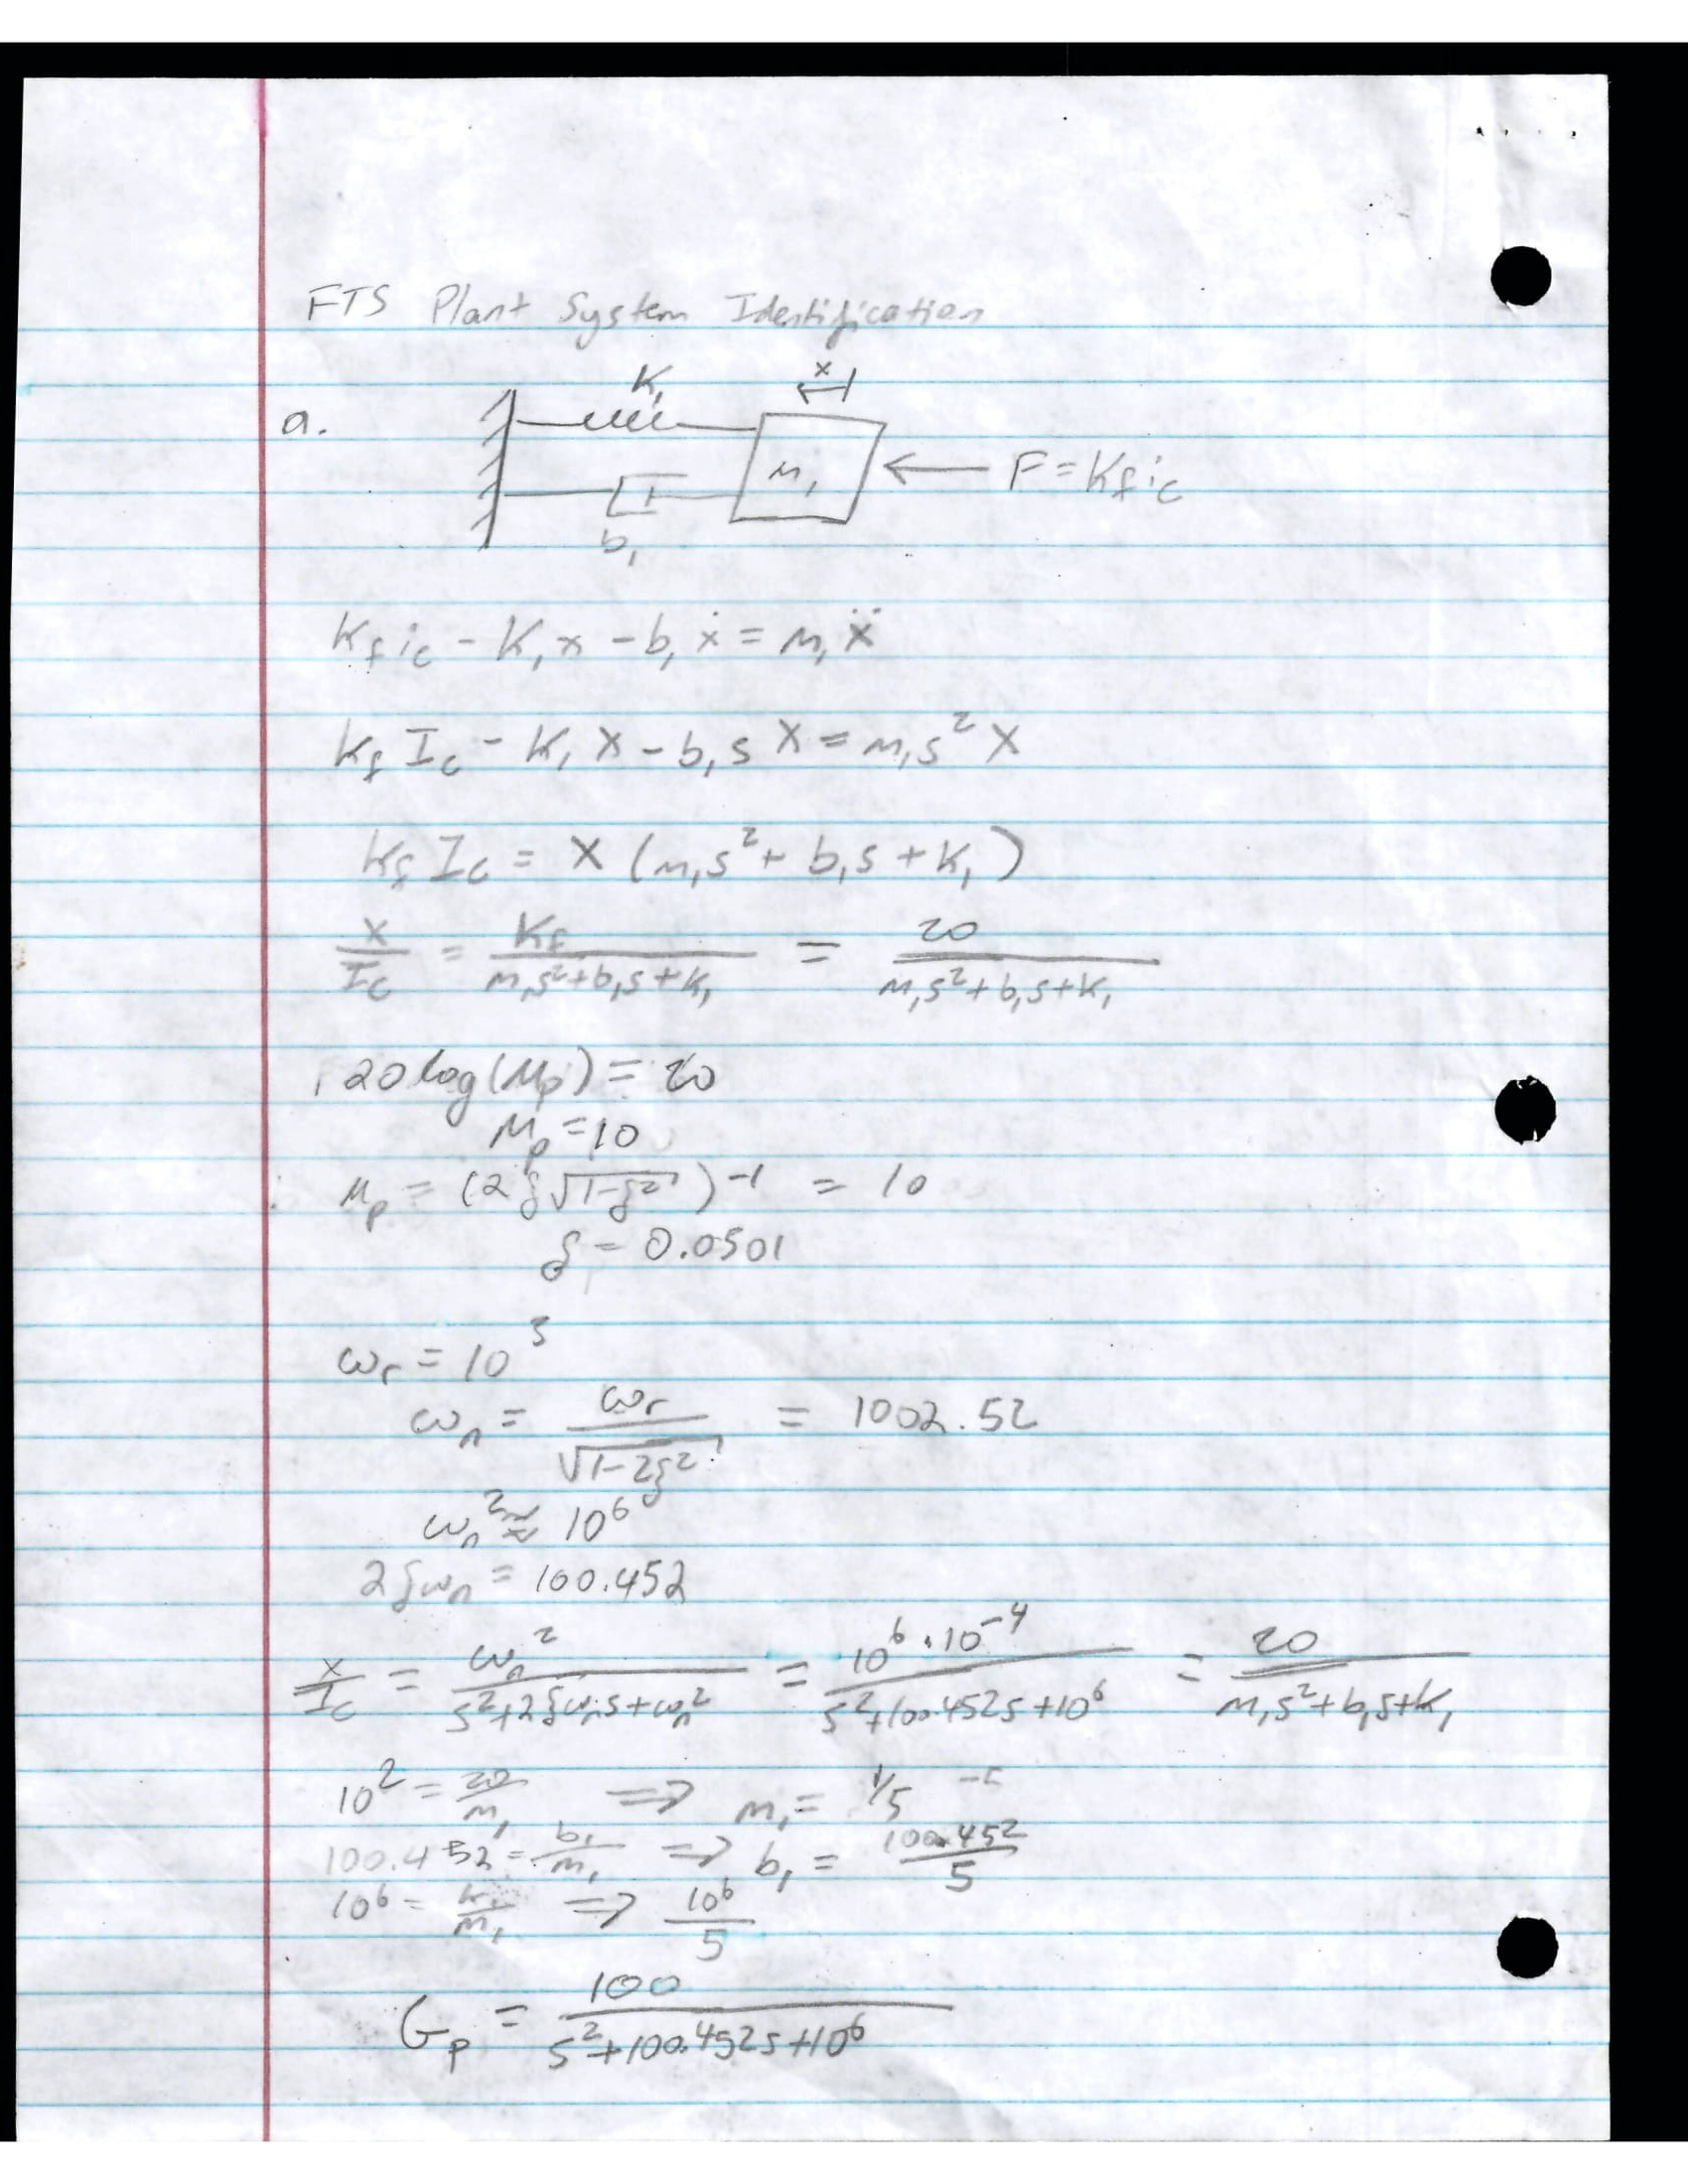 FTS Plant System Identification
a.
K₁
x
m₁
F = Kf ic
b₁
Kf ic - K₁x - b₁ẋ = m₁ẍ
Kf Ic - K₁X - b₁sX = m₁s²X
Kf Ic = X(m₁s² + b₁s + K₁)
X/Ic = Kf/(m₁s²+b₁s+K₁) = 20/(m₁s²+b₁s+K₁)
20log(Mp) = 20
Mp = 10
Mp = (2ζ√(1-ζ²))⁻¹ = 10
ζ = 0.0501
ωr = 10³
ωn = ωr/√(1-2ζ²) = 1002.52
ωn² ≈ 10⁶
2ζωn = 100.452
X/Ic = ωn²/(s²+2ζωns+ωn²) = 10⁶·10⁻⁴/(s²+100.452s+10⁶) = 20/(m₁s²+b₁s+K₁)
10² = 20/m₁ ⇒ m₁ = 1/5
100.452 = b₁/m₁ ⇒ b₁ = 100.452/5
10⁶ = K₁/m₁ ⇒ 10⁶/5
Gp = 100/(s²+100.452s+10⁶)